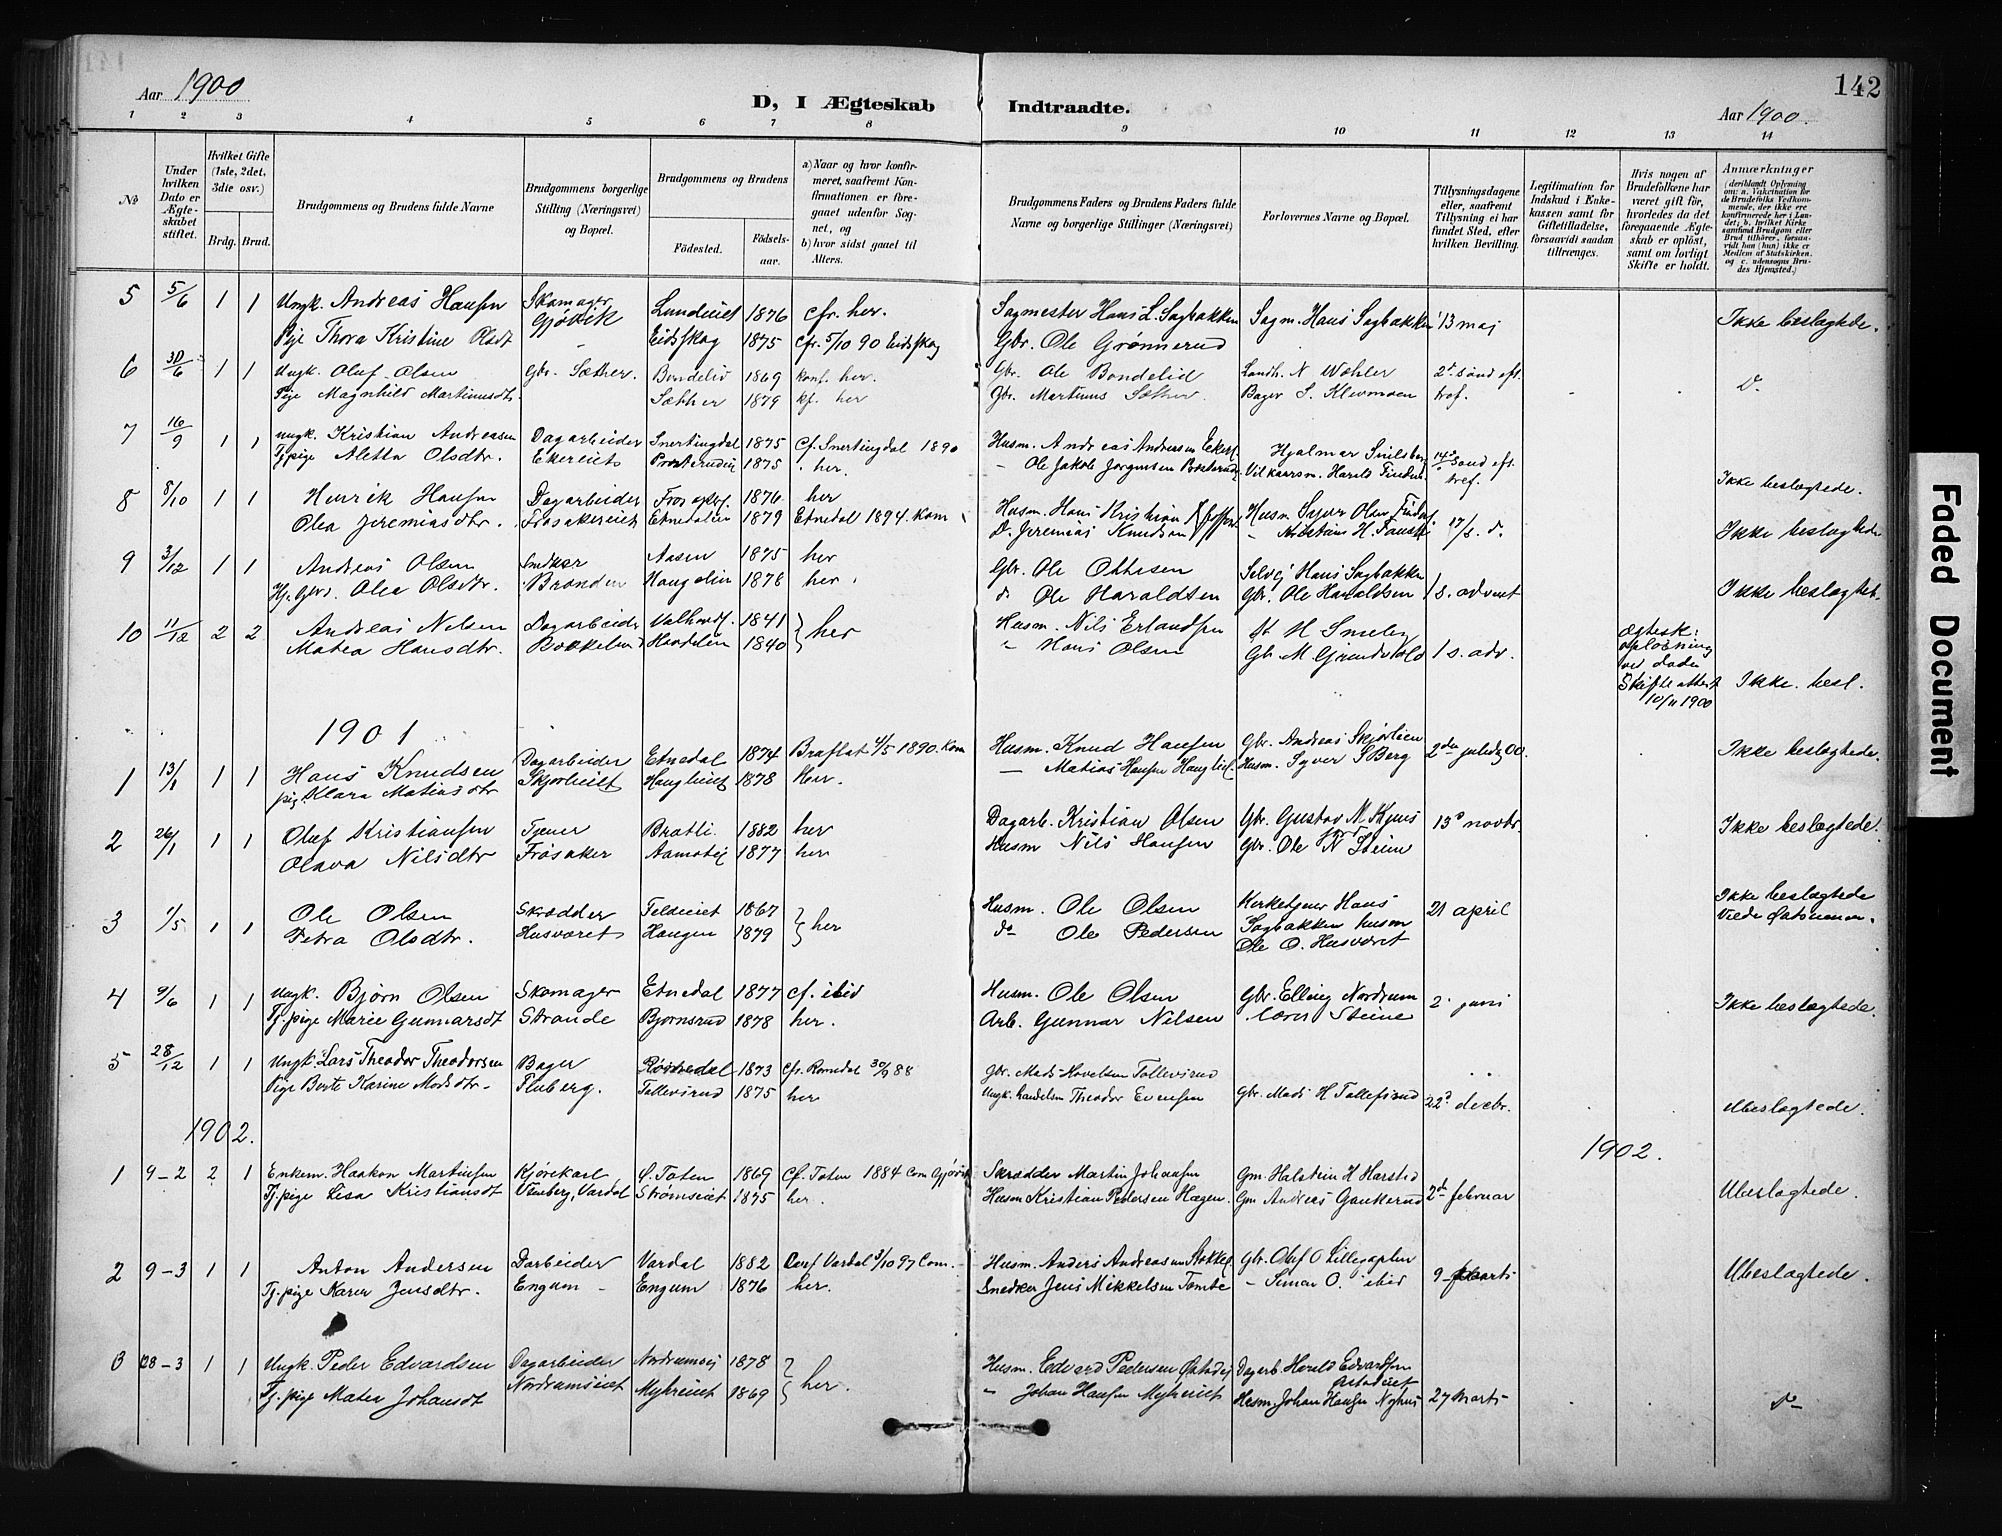 142
Aar 1900
D, I Ægteskab Indtraadte.
Aar 1900.
1 2 3 4 5 6 7 8 9 10 11 12 13 14
№
Under hvilken Dato er Ægteskabet stiftet.
Hvilket Gifte (1ste, 2det, 3die osv.)
Brdg. Brud.
Brudgommens og Brudens fulde Navne
Brudgommens borgerlige Stilling (Næringsvei) og Bopæl.
Brudgommens og Brudens
Födested.
Födselsaar.
a) Naar og hvor konfirmeret, saafremt Konfirmationen er foregaaet udenfor Sognet, og
b) hvor sidst gaaet til Alters.
Brudgommens Faders og Brudens Faders fulde Navne og borgerlige Stillinger (Næringsvei)
Forlovernes Navne og Bopæl.
Tillysningsdagene eller, saafremt Tillysning ei har fundet Sted, efter hvilken Bevilling.
Legitimation for Indskud i Enkekassen samt for Giftetilladelse, forsaavidt saadan tiltrænges.
Hvis nogen af Brudefolkene har været gift för, hvorledes da det foregaaende Ægteskab er oplöst, samt om lovligt Skifte er holdt.
Anmærkninger
(deriblandt Oplysning om: a. Vakcination for de Brudefolks Vedkommende, der ikke ere konfirmerede her i Landet; b. hvilket Kirkesamfund Brudgom eller Brud tilhörer, forsaavidt han (hun) ikke er Medlem af Statskirken, og c. udensogns Brudes Hjemsted.)
5 5/6 1 1 Ungk. Andreas Hansen Skomager Lundeiet 1876 cfr. her. Sagmester Hans L. Sagbakken Sagm. Hans Sagbakken 13 maj Ikke beslægtede.
Pige Thora Kristine Olsdt Gjøvik Eidskog 1875 cfr. 5/10 90 Eidskog Gbr. Ole Grønnerud
6 30/6 1 1 Ungk. Oluf Olsen Gbr. Sæther. Bondelid 1869 konf. her. Gbr. Ole Bondelid Landh. N Wøhler 2d sønd eft. D.
Pige Magnhild Martinusdtr Sæther 1879 kf. her Gbr. Martinus Sæther Bager S. Klevmoen tref.
7 16/9 1 1 Ungk. Kristian Andreasen Dagarbeider Snertingdal 1875 Cf. Snertingdal 1890 Husm. Andreas Andersen Hjalmar 14d sønd eft.
Tj.pige Aletta Olsdtr. Ekereiets 1875 her. Ole Jakob Jørgensen Vilkaarsm. Harald tref. Ikke beslægtede.
8 8/10 1 1 Henrik Hansen Dagarbeider 1876 her Husm. Hans Kristian Husm Syver Olsen 17/8. d.
Olea Jeremiasdtr. Frøsakereiet Etnedalen 1879 Etnedal 1894. Kom D. Jeremias Knudsen Kristian H. Ikke beslægtede
9 3/12 1 1 Andreas Olsen Snedker Aasen 1875 her Gbr. Ole Ottesen Selvej Hans Sagbakken
Hj. Gbr. Olea Olsdtr. Branden Haugalien 1878 her. d. Ole Haraldsen Gbr. Ole Haraldsen 1 s. advent Ikke beslægtet.
10 11/12 2 2 Andreas Nilsen Dagarbeider 1841 her Husm. Nils Erlandsen H Smeby Ægtesk: opløsning
Matea Hansdtr. 1840 Hans Olsen Gbr M. Grindvold 1 s. adv. ved døden Skifteattest 10/11 1900 Ikke. besl.
1901
1 13/1 1 1 Hans Knudsen Dagarbeider Etnedal 1874 4/5 1890. Kom Husm. Knud Hansen Gbr. Andreas Skjørlien 2den juledg 00. Ikke beslægtede.
pig. Klara Matiasdtr Skjørlieiet Hauglieiet 1878 her. Matias Hansen Husm. Syver S Berg
2 26/1 1 1 Oluf Kristiansen Tjener Bratli. 1882 her Dagarb. Kristian Olsen Gbr. Gustav 13d novbr. Ikke beslægtede.
Olava Nilsdtr Frøsaker 1877 her Husm Nils Hansen Gbr. Ole N Steine
3 1/5 1 1 Ole Olsen Skrædder 1867 her Husm. Ole Olsen Kirketjener Hans 21 april Ikke beslægtede
Petra Olsdtr. Husværet Haugen 1879 do Ole Pedersen Sagbakken husm Ole O. Husværet
4 9/6 1 1 Ungk. Bjørn Olsen Skomager Etnedal 1877 Cf. ibid Husm. Ole Olsen Gbr. Elling Nordrum 2. juni Ikke beslægtede.
Tj.pige Marie Gunnarsdt Strande Bjørnsrud 1878 her. Arb. Gunnar Nilsen Lærer Steine
5 28/12 1 1 Ungk. Lars Theodor Theodorsen Bager 1873 Cfr. Romedal 30/9 88 Gbr. Mads Hovelsen Tollevsrud
Pige Berte Karine Madsdtr. Fluberg. Tollevsrud 1875 her Ungk. handelsm Theodor Evensen Gbr. Mads H Tollefsrud 22d decbr. Ubeslægtede.
1902. 1902.
1 9-2 2 1 Enkem. Haakon Martinsen Kjørekarl Ø. Toten 1869 Cf. Toten 1884 Com Gjøvik Skrædder Martin Johansen Gm. Halstein H Harstad
Tj.pige Lisa Kristiansdt Vardal Strømseiet 1875 her. Husm Kristian Pedersen Hagen. Gm Andreas Gaukerud 2d februar Ubeslægtede.
2 9-3 1 1 Anton Andersen Darbeider Vardal 1882 Conf Vardal 3/10 97 Com. Husm. Anders Andreassen Gbr. Oluf O Lillegaplen 9 marts Ubeslægtede.
Tj.pige Karen Jensdtr. Engum Engum 1876 her. Snedker Jens Mikkelsen Tømte Simen O. ibid
3 28-3 1 1 Ungk. Peder Edvardsen Dagarbeider Nordrumsej 1878 her. Husm. Edvard Pedersen Dagarb. Harald Edvardsen
Tj.pige Matea Johansdt Nordrumseiet Myhreiet 1869 Johan Hansen Myhreiet Husm. Johan Hansen Nyhus 27 Marts D
Faded Document